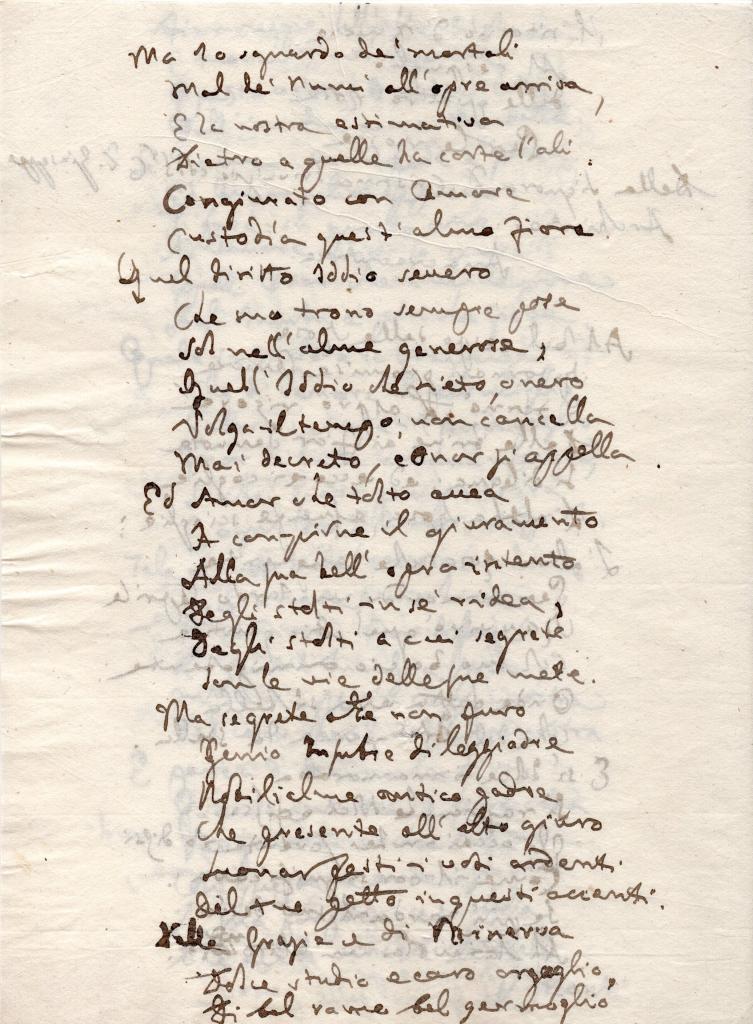 Ma lo sguardo de' mortali
Mal de' Numi all'opre arriva,
E la nostra estimativa
Dietro a quelle ha corte l'ali:
Congiurato con Amore
Custodia quest'almo fiore.
Quel diritto Iddio severo
Che suo trono sempre pose
Sol nell'alme generose,
Quell'Iddio che lieto, o nero
Volga il tempo, non cancella
Mai decreto, e Onor si appella
Ed Amor che tolto avea
A compirne il giuramento
Alla sua bell'opra intento
Degli stolti in se ridea,
Degli stolti a cui segrete
Son le vie delle sue mete.
Ma segrete a Te non furo
Genio Insubre di leggiadre
Nobili alme antico padre
Che presente all'alto giuro
Suonar festi i voti ardenti
Del tuo petto in questi accenti.
Delle Grazie e di Minerva
Dolce studio e caro orgoglio,
Di bel rame bel germoglio